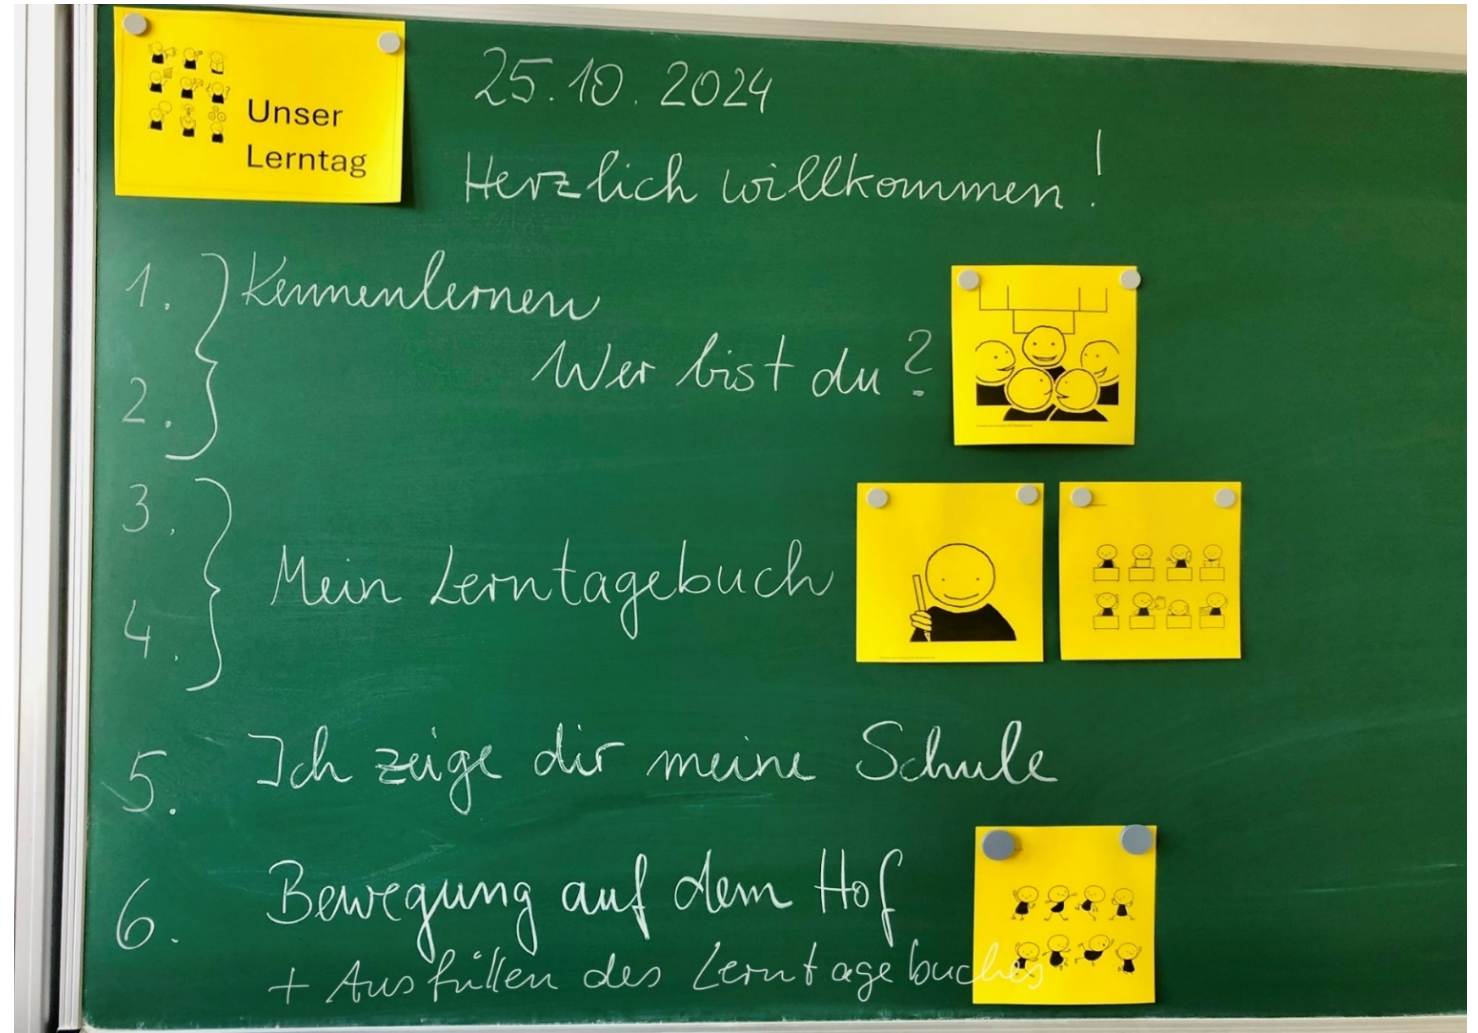 Unser
Lerntag
25.10.2024
Herzlich willkommen!
1. Kennenlernen
Wer bist du?
2.
3.
Mein Lerntagebuch
4.
5. Ich zeige dir meine Schule
6. Bewegung auf dem Hof
+ Ausfüllen des Lerntagebuches